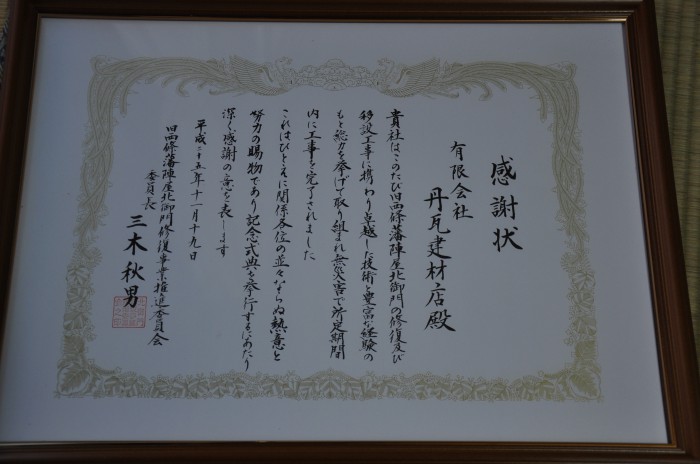 感謝状
有限会社
丹瓦建材店殿
貴社はこのたび旧西條藩陣屋北御門の修復及び
移設工事に携わり卓越した技術と豊富な経験の
もと総力を挙げて取り組まれ無災害で所定期間
内に工事を完了されました
これはひとえに関係各位の並々ならぬ熱意と
努力の賜物であり記念式典を挙行するにあたり
深く感謝の意を表します
平成二十五年十一月十九日
旧西條藩陣屋北御門修復事業推進委員会
委員長 三木秋男